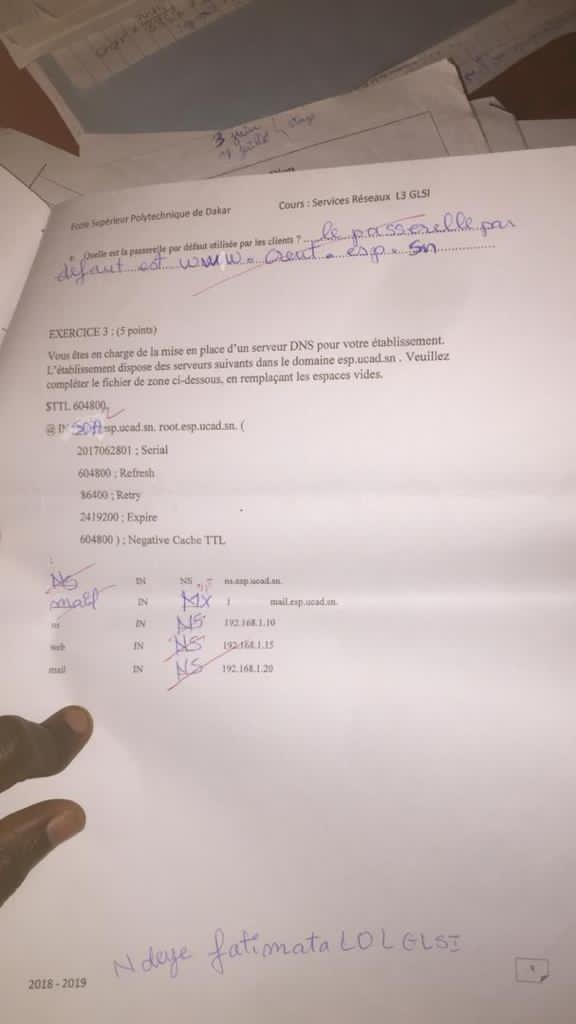 3 juin
Ecole Supérieur Polytechnique de Dakar
Cours : Services Réseaux L3 GLSI
Quelle est la passerelle par défaut utilisée par les clients ? le passerelle par
defaut est www. . esp. sn
EXERCICE 3 : (5 points)
Vous êtes en charge de la mise en place d'un serveur DNS pour votre établissement.
L'établissement dispose des serveurs suivants dans le domaine esp.ucad.sn . Veuillez
compléter le fichier de zone ci-dessous, en remplaçant les espaces vides.
$TTL 604800
@ IN SOA esp.ucad.sn. root.esp.ucad.sn. (
2017062801 ; Serial
604800 ; Refresh
86400 ; Retry
2419200 ; Expire
604800 ) ; Negative Cache TTL
;
NS IN NS ns.esp.ucad.sn.
mail IN MX 1 mail.esp.ucad.sn.
ns IN NS 192.168.1.10
web IN NS 192.168.1.15
mail IN NS 192.168.1.20
Ndeye fatimata LO L GLSI
2018 - 2019